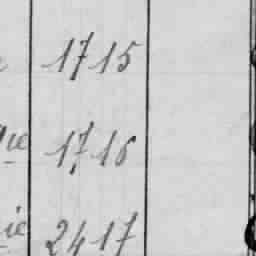 1715
gie 1716
ie 2417